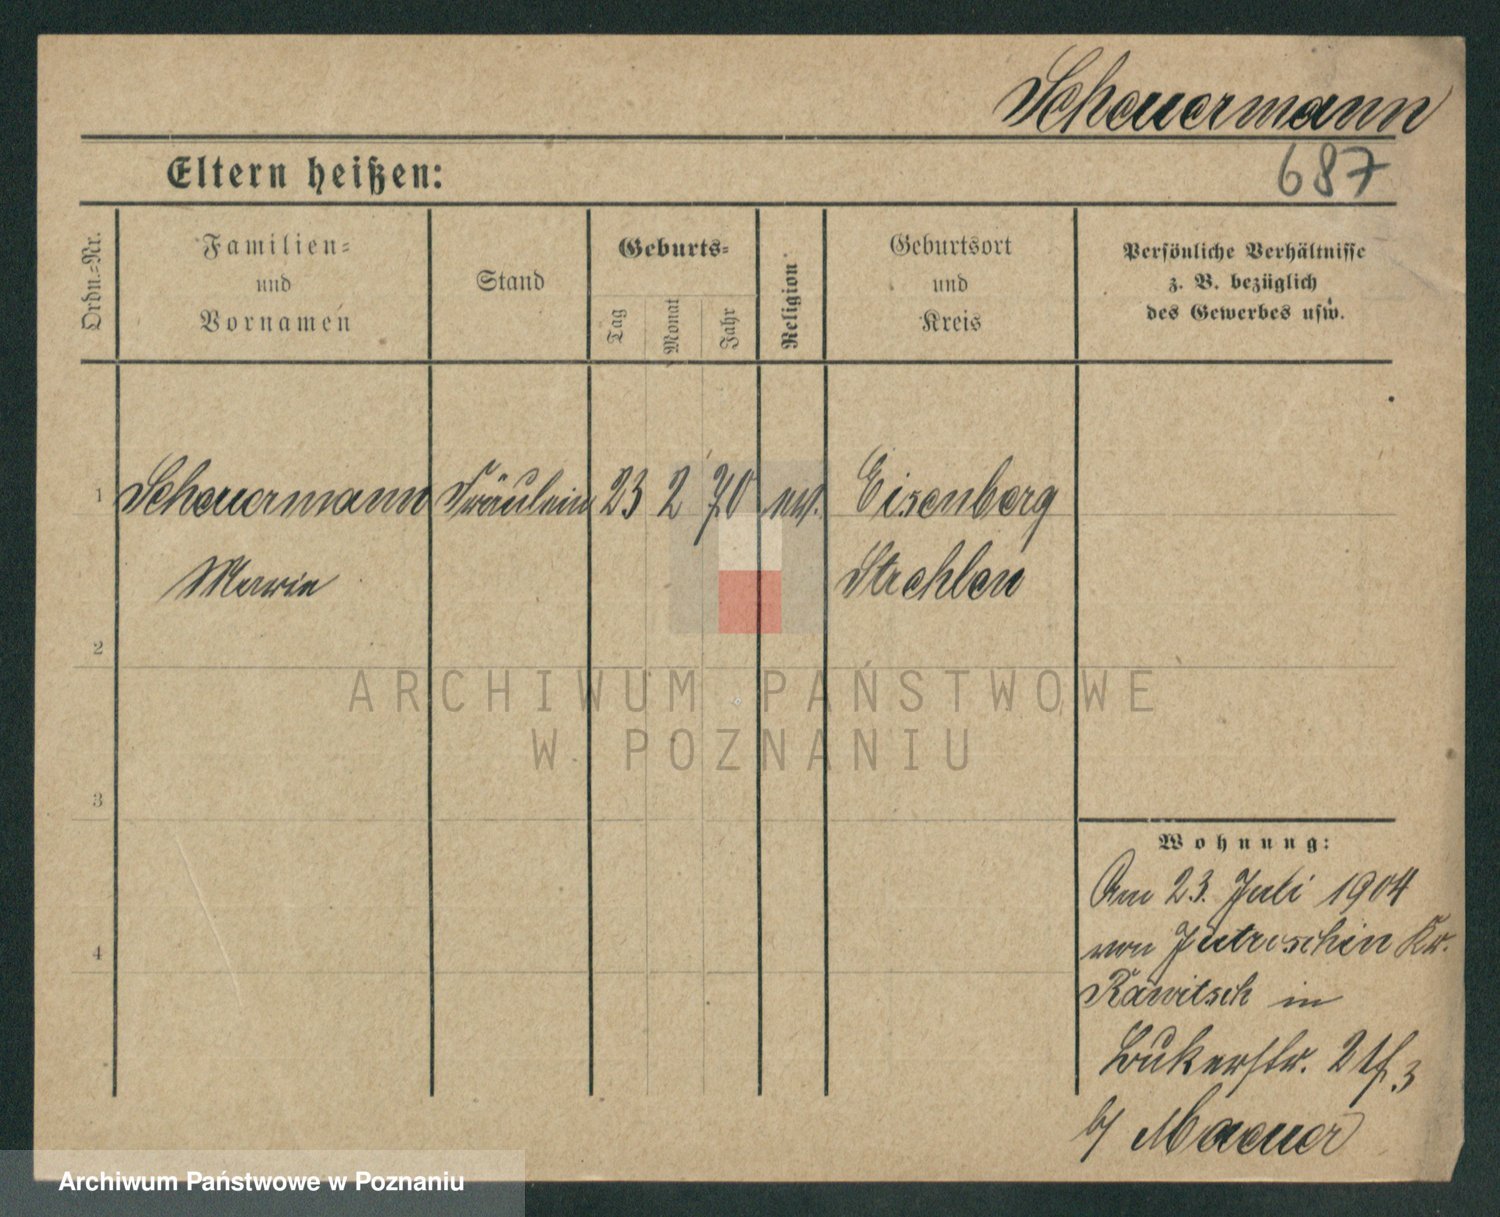 Scheuermann
687
Eltern heißen:
Ordn.=Nr.
Familien=
und
Vornamen
Stand
Geburts=
Tag
Monat
Jahr
Religion
Geburtsort
und
Kreis
Persönliche Verhältnisse
z. B. bezüglich
des Gewerbes usw.
1 Scheuermann Fräulein 23 2 70 Eisenberg
Marie Strehlen
2
3
4
Wohnung:
Am 23. Juli 1904
von Jutroschin Kr.
Rawitsch in
b/ Maeuer
ARCHIWUM PAŃSTWOWE
W POZNANIU
Archiwum Państwowe w Poznaniu